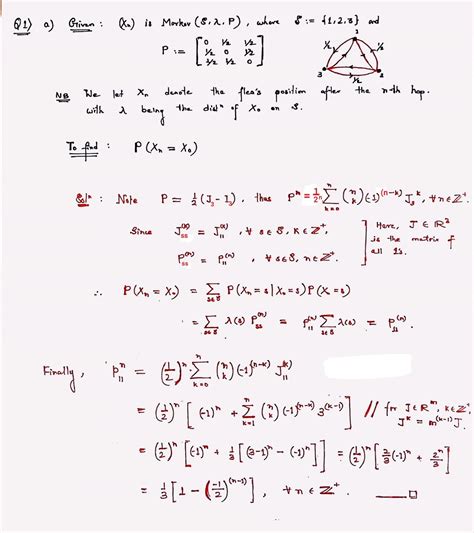 Q1) a) Given : (Xn) is Markov (S, λ, P), where S := {1,2,3} and
P := [ 0 ½ ½
½ 0 ½
½ ½ 0 ]
1
½ ½
3 2
½
NB We let Xn denote the flea's position after the n-th hop.
with λ being the distⁿ of X₀ on S.
To find : P(Xn = X₀)
Solⁿ : Note P = ½ (J₃ - I₃), thus Pⁿ = 1/2ⁿ Σ_{k=0}^{n} (n k) (-1)^(n-k) J₃^k, ∀ n ∈ Z⁺.
Since J_ss^(k) = J_11^(k), ∀ s ∈ S, k ∈ Z⁺,
P_ss^(n) = P_11^(n), ∀ s ∈ S, n ∈ Z⁺.
Here, J ∈ ℝ³
is the matrix of
all 1s.
∴ P(Xn = X₀) = Σ_{s∈S} P(Xn = s | X₀ = s) P(X₀ = s)
= Σ_{s∈S} λ(s) P_ss^(n) = P_11^(n) Σ_{s∈S} λ(s) = P_11^(n).
Finally, P_11^n = (1/2)^n · Σ_{k=0}^{n} (n k) (-1)^(n-k) J_11^(k)
= (1/2)^n [ (-1)^n + Σ_{k=1}^{n} (n k) (-1)^(n-k) 3^(k-1) ] // for J ∈ ℝ^m, k ∈ Z⁺,
J^k = m^(k-1) J.
= (1/2)^n [ (-1)^n + 1/3 [ (3-1)^n - (-1)^n ] ] = (1/2)^n [ 2/3 (-1)^n + 2^n/3 ]
= 1/3 [ 1 - (-1/2)^(n-1) ], ∀ n ∈ Z⁺. □